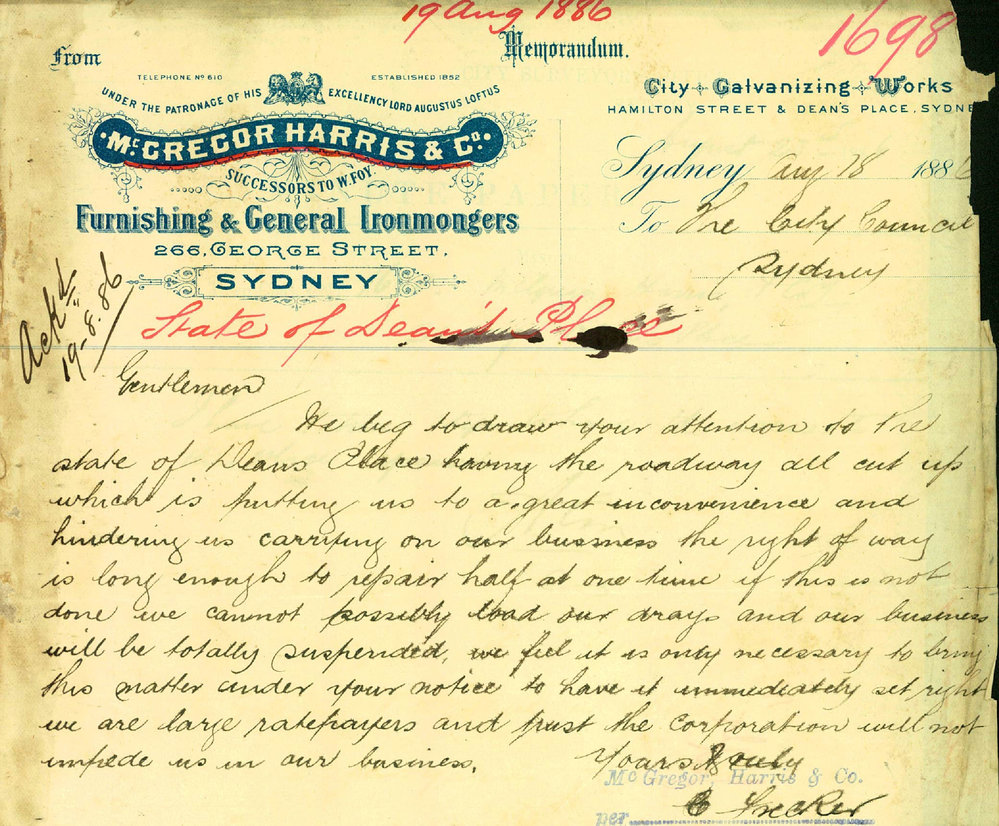 19 Aug 1886
1698
From
Memorandum.
TELEPHONE No 610
ESTABLISHED 1852
UNDER THE PATRONAGE OF HIS EXCELLENCY LORD AUGUSTUS LOFTUS
McGREGOR HARRIS & Co.
SUCCESSORS TO W. FOY.
Furnishing & General Ironmongers
266, GEORGE STREET,
SYDNEY
City Galvanizing Works
HAMILTON STREET & DEAN'S PLACE, SYDNE
Sydney Aug 18 1886
To The City Council
Sydney
Ackd
19-8-86
State of Dean's Place
Gentlemen
We beg to draw your attention to the
state of Deans Place having the roadway all cut up
which is putting us to a great inconvenience and
hindering us carrying on our business the right of way
is long enough to repair half at one time if this is not
done we cannot possibly load our drays and our business
will be totally suspended, we feel it is only necessary to bring
this matter under your notice to have it immediately set right
we are large ratepayers and trust the corporation will not
impede us in our business.
Yours truly
McGregor, Harris & Co.
per